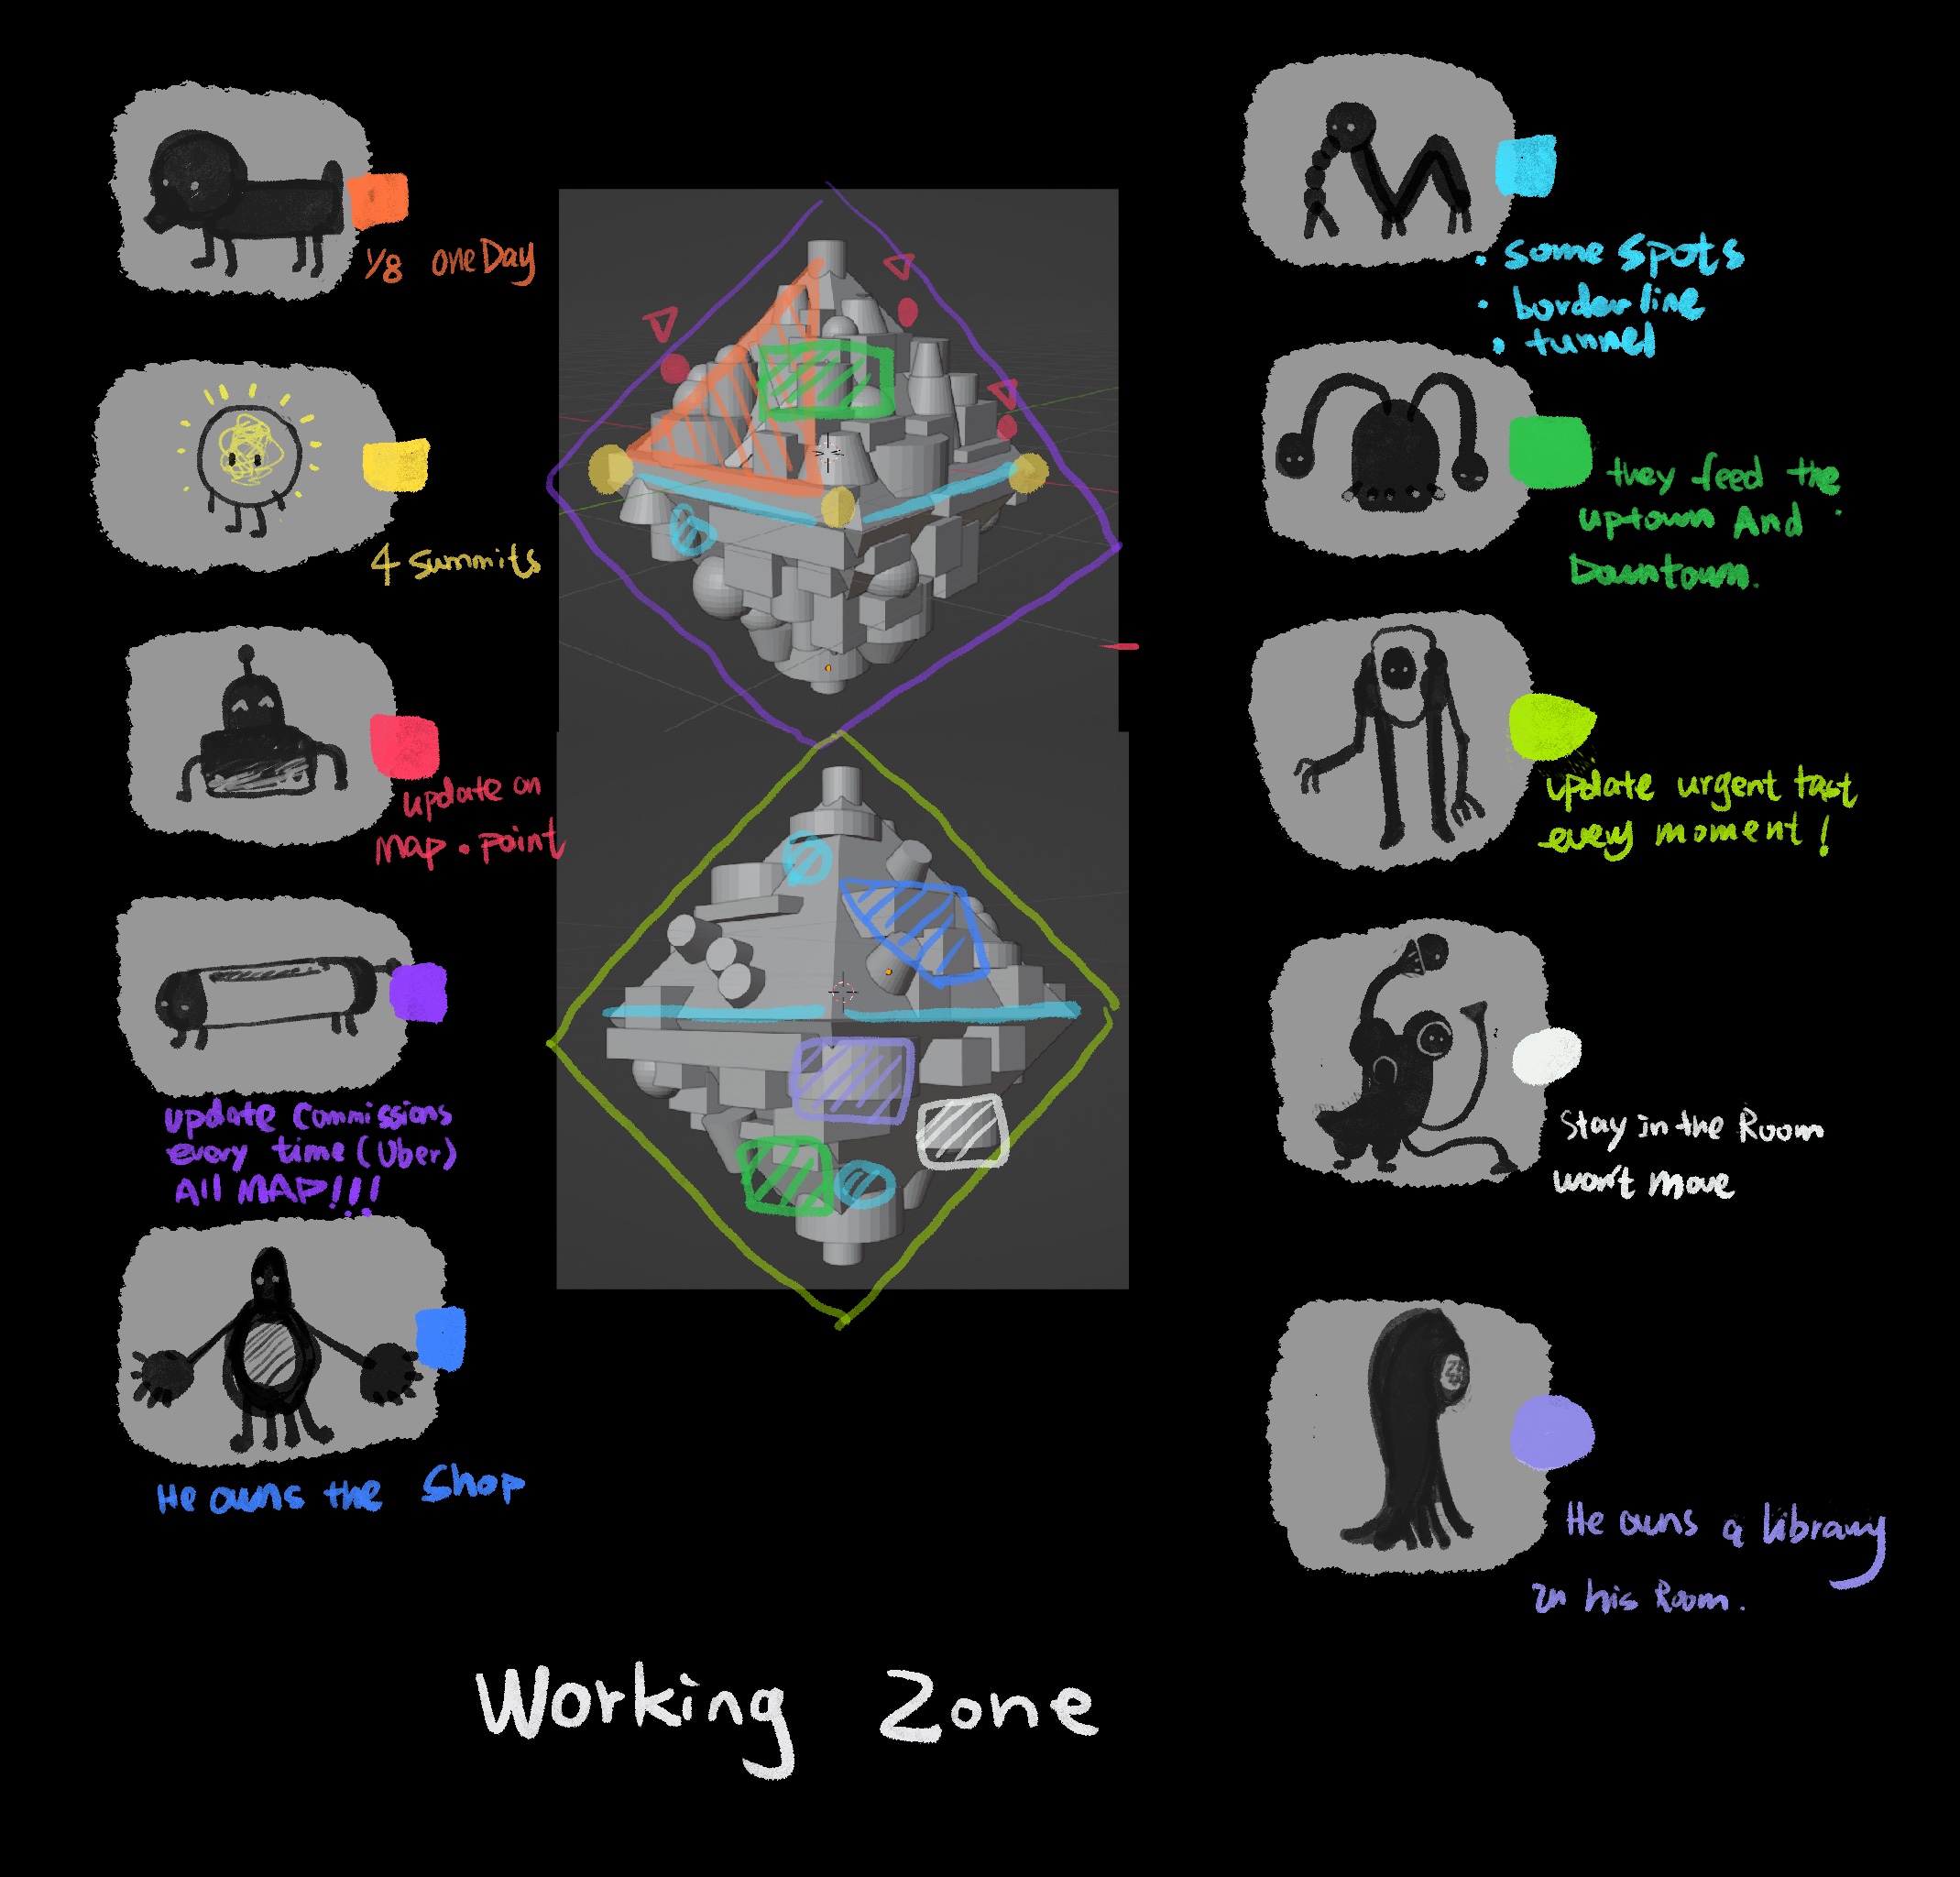 1/8 one Day
4 summits
update on
map • point
update Commissions
every time (Uber)
All MAP!!!
He owns the Shop
• some spots
• border line
• tunnel
they feed the
uptown And
Downtown.
update urgent tast
every moment!
Stay in the Room
won't move
He owns a library
in his Room.
Working Zone